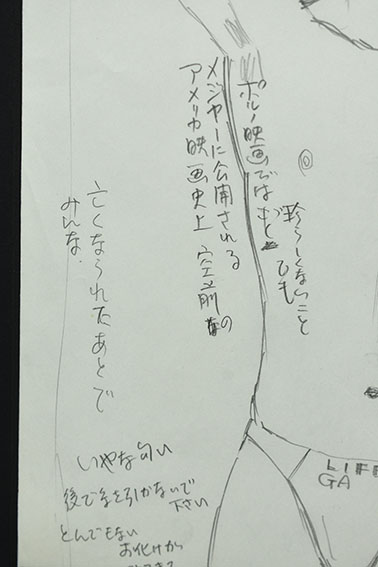 ポルノ映画では
珍らしくないこと
でも
メジャーに公開される
アメリカ映画史上 空前の
亡くなられたあとで
みんな.
いやな匂い
後で手を引かないで
下さい
とんでもない
お化けから
LIFE
GA